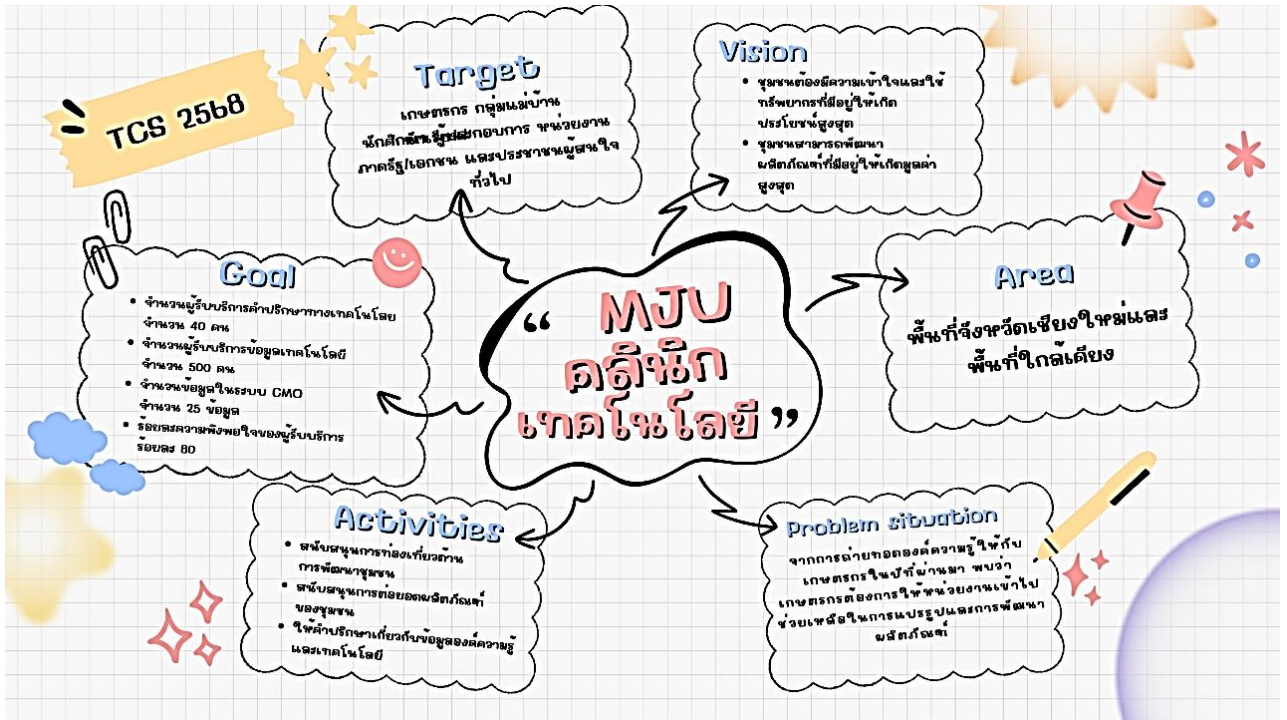 TCS 2568
Target
เกษตรกร กลุ่มแม่บ้าน
นักศึกษา ผู้ประกอบการ หน่วยงาน
ภาครัฐ/เอกชน และประชาชนผู้สนใจ
ทั่วไป
Vision
• ชุมชนต้องมีความเข้าใจและใช้
ทรัพยากรที่มีอยู่ให้เกิด
ประโยชน์สูงสุด
• ชุมชนสามารถพัฒนา
ผลิตภัณฑ์ที่มีอยู่ให้เกิดมูลค่า
สูงสุด
Goal
• จำนวนผู้รับบริการคำปรึกษาทางเทคโนโลย
จำนวน 40 คน
• จำนวนผู้รับบริการข้อมูลเทคโนโลยี
จำนวน 500 คน
• จำนวนข้อมูลในระบบ CMO
จำนวน 25 ข้อมูล
• ร้อยละความพึงพอใจของผู้รับบริการ
ร้อยละ 80
“ MJU
คลินิก
เทคโนโลยี ”
Area
พื้นที่จังหวัดเชียงใหม่และ
พื้นที่ใกล้เคียง
Activities
• สนับสนุนการท่องเที่ยวด้าน
การพัฒนาชุมชน
• สนับสนุนการต่อยอดผลิตภัณฑ์
ของชุมชน
• ให้คำปรึกษาเกี่ยวกับข้อมูลองค์ความรู้
และเทคโนโลยี
Problem situation
จากการถ่ายทอดองค์ความรู้ให้กับ
เกษตรกรในปีที่ผ่านมา พบว่า
เกษตรกรต้องการให้หน่วยงานเข้าไป
ช่วยเหลือในการแปรรูปและการพัฒนา
ผลิตภัณฑ์